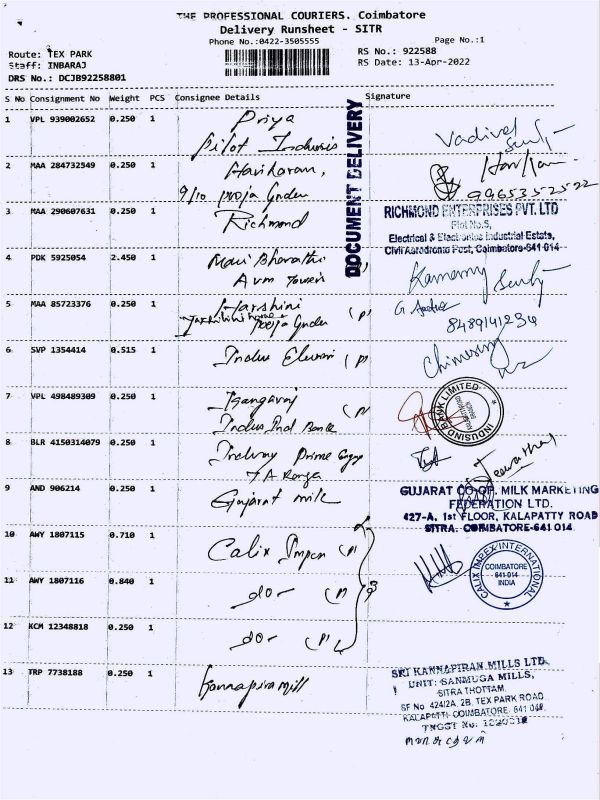 THE PROFESSIONAL COURIERS. Coimbatore
Delivery Runsheet - SITR
Phone No.:0422-3505555
Page No.:1
Route: TEX PARK
RS No.: 922588
Staff: INBARAJ
RS Date: 13-Apr-2022
DRS No.: DCJB92258801
S No Consignment No Weight PCS Consignee Details Signature
DOCUMENT DELIVERY
1 VPL 939002652 0.250 1 Priya
Pilot
Vadivel
2 MAA 284732549 0.250 1 Hariharan,
9/10 pooja Garden
Hari
3 MAA 290607631 0.250 1 Richmond
RICHMOND ENTERPRISES PVT. LTD
Plot No.5,
Electrical & Electronics Industrial Estate,
Civil Aerodrome Post, Coimbatore-641 014
4 PDK 5925054 2.450 1 Mani Bharathi
AVM Tower
5 MAA 85723376 0.250 1 Harshini
pooja Garden (P)
8489141234
6 SVP 1354414 0.515 1 Indus (P)
7 VPL 498489309 0.250 1 Kangaraj
Indus Ind Bank
INDUSIND BANK LIMITED
8 BLR 4150314079 0.250 1 Prime
9 AND 906214 0.250 1 Gujarat milk
GUJARAT CO-OP. MILK MARKETING
FEDERATION LTD.
427-A, 1st FLOOR, KALAPATTY ROAD
SITRA. COIMBATORE-641 014
10 AWY 1807115 0.710 1 Calix Impex (P)
CALIX IMPEX INTERNATIONAL
COIMBATORE
641-014
INDIA
11 AWY 1807116 0.840 1 do - (P)
12 KCM 12348818 0.250 1 do - (P)
13 TRP 7738188 0.250 1 Kannapiran Mill
SRI KANNAPIRAN MILLS LTD.
UNIT: SANMUGA MILLS,
SITRA THOTTAM,
SF No 424/2A, 2B, TEX PARK ROAD
KALAPATTI COIMBATORE 641 048.
TNGST No: